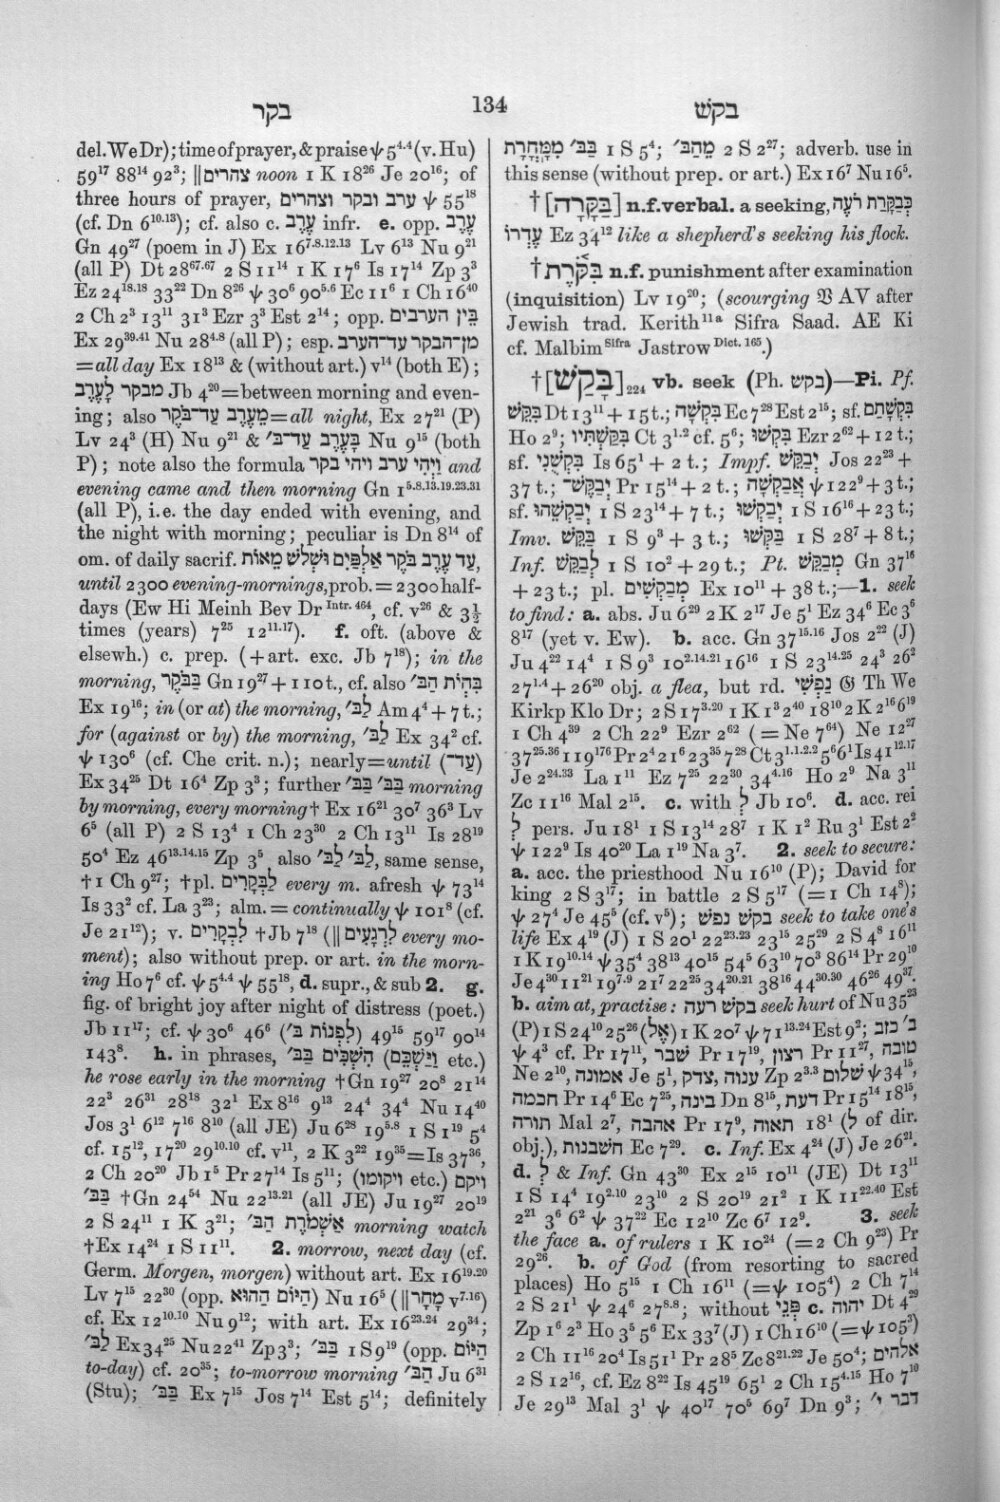 בקר
134
בקשׁ
del. We Dr); time of prayer, & praise ψ 5⁴·⁴ (v. Hu)
59¹⁷ 88¹⁴ 92³; ‖צהרים noon 1 K 18²⁶ Je 20¹⁶; of
three hours of prayer, ערב ובקר וצהרים ψ 55¹⁸
(cf. Dn 6¹⁰·¹³); cf. also c. עֶרֶב infr. e. opp. עֶרֶב
Gn 49²⁷ (poem in J) Ex 16⁷·⁸·¹²·¹³ Lv 6¹³ Nu 9²¹
(all P) Dt 28⁶⁷·⁶⁷ 2 S 11¹⁴ 1 K 17⁶ Is 17¹⁴ Zp 3³
Ez 24¹⁸·¹⁸ 33²² Dn 8²⁶ ψ 30⁶ 90⁵·⁶ Ec 11⁶ 1 Ch 16⁴⁰
2 Ch 2³ 13¹¹ 31³ Ezr 3³ Est 2¹⁴; opp. בֵּין הערבים
Ex 29³⁹·⁴¹ Nu 28⁴·⁸ (all P); esp. מן־הבקר עד־הערב
=all day Ex 18¹³ & (without art.) v¹⁴ (both E);
מבקר לָעֶרֶב Jb 4²⁰=between morning and even-
ing; also מֵעֶרֶב עַד־בֹּקֶר=all night, Ex 27²¹ (P)
Lv 24³ (H) Nu 9²¹ & בָּעֶרֶב עַד־בּ׳ Nu 9¹⁵ (both
P); note also the formula וַיְהִי ערב ויהי בקר and
evening came and then morning Gn 1⁵·⁸·¹³·¹⁹·²³·³¹
(all P), i.e. the day ended with evening, and
the night with morning; peculiar is Dn 8¹⁴ of
om. of daily sacrif. עַד עֶרֶב בֹּקֶר אַלְפַּיִם וּשְׁלֹשׁ מֵאוֹת,
until 2300 evening-mornings, prob.=2300 half-
days (Ew Hi Meinh Bev Dr Intr. 464, cf. v²⁶ & 3½
times (years) 7²⁵ 12¹¹·¹⁷). f. oft. (above &
elsewh.) c. prep. (+art. exc. Jb 7¹⁸); in the
morning, בַּבֹּקֶר Gn 19²⁷+110 t., cf. also בִּהְיֹת הַבּ׳
Ex 19¹⁶; in (or at) the morning, לַבּ׳ Am 4⁴+7 t.;
for (against or by) the morning, לַבּ׳ Ex 34² cf.
ψ 130⁶ (cf. Che crit. n.); nearly=until (עַד־)
Ex 34²⁵ Dt 16⁴ Zp 3³; further בַּבּ׳ בַּבּ׳ morning
by morning, every morning† Ex 16²¹ 30⁷ 36³ Lv
6⁵ (all P) 2 S 13⁴ 1 Ch 23³⁰ 2 Ch 13¹¹ Is 28¹⁹
50⁴ Ez 46¹³·¹⁴·¹⁵ Zp 3⁵, also לַבּ׳ לַבּ׳, same sense,
†1 Ch 9²⁷; †pl. לַבְּקָרִים every m. afresh ψ 73¹⁴
Is 33² cf. La 3²³; alm.=continually ψ 101⁸ (cf.
Je 21¹²); v. לִבְקָרִים †Jb 7¹⁸ (‖לִרְגָעִים every mo-
ment); also without prep. or art. in the morn-
ing Ho 7⁶ cf. ψ 5⁴·⁴ ψ 55¹⁸, d. supr., & sub 2. g.
fig. of bright joy after night of distress (poet.)
Jb 11¹⁷; cf. ψ 30⁶ 46⁶ (לִפְנוֹת בּ׳) 49¹⁵ 59¹⁷ 90¹⁴
143⁸. h. in phrases, הִשְׁכִּים בַּבּ׳ (וַיַּשְׁכֵּם etc.)
he rose early in the morning †Gn 19²⁷ 20⁸ 21¹⁴
22³ 26³¹ 28¹⁸ 32¹ Ex 8¹⁶ 9¹³ 24⁴ 34⁴ Nu 14⁴⁰
Jos 3¹ 6¹² 7¹⁶ 8¹⁰ (all JE) Ju 6²⁸ 19⁵·⁸ 1 S 1¹⁹ 5⁴
cf. 15¹², 17²⁰ 29¹⁰·¹⁰ cf. v¹¹, 2 K 3²² 19³⁵=Is 37³⁶,
2 Ch 20²⁰ Jb 1⁵ Pr 27¹⁴ Is 5¹¹; (ויקומו etc.) ויקם
בַּבּ׳ †Gn 24⁵⁴ Nu 22¹³·²¹ (all JE) Ju 19²⁷ 20¹⁹
2 S 24¹¹ 1 K 3²¹; אַשְׁמֹרֶת הַבּ׳ morning watch
†Ex 14²⁴ 1 S 11¹¹. 2. morrow, next day (cf.
Germ. Morgen, morgen) without art. Ex 16¹⁹·²⁰
Lv 7¹⁵ 22³⁰ (opp. הַיּוֹם הַהוּא) Nu 16⁵ (‖מָחָר v⁷·¹⁶)
cf. Ex 12¹⁰·¹⁰ Nu 9¹²; with art. Ex 16²³·²⁴ 29³⁴;
לַבּ׳ Ex 34²⁵ Nu 22⁴¹ Zp 3³; בַּבּ׳ 1 S 9¹⁹ (opp. הַיּוֹם
to-day) cf. 20³⁵; to-morrow morning הַבּ׳ Ju 6³¹
(Stu); בַּבּ׳ Ex 7¹⁵ Jos 7¹⁴ Est 5¹⁴; definitely
בַּבּ׳ מִמָּחֳרָת 1 S 5⁴; מֵהַבּ׳ 2 S 2²⁷; adverb. use in
this sense (without prep. or art.) Ex 16⁷ Nu 16⁵.
†[בַּקָּרָה] n.f.verbal. a seeking, כְּבַקָּרַת רֹעֶה
עֶדְרוֹ Ez 34¹² like a shepherd's seeking his flock.
†בִּקֹּרֶת n.f. punishment after examination
(inquisition) Lv 19²⁰; (scourging 𝔙 AV after
Jewish trad. Kerith¹¹ᵃ Sifra Saad. AE Ki
cf. Malbim Sifra Jastrow Dict. 165.)
†[בָּקַשׁ]₂₂₄ vb. seek (Ph. בקש)—Pi. Pf.
בִּקֵּשׁ Dt 13¹¹+15 t.; בִּקְשָׁה Ec 7²⁸ Est 2¹⁵; sf. בִּקְשָׁתַם
Ho 2⁹; בִּקַּשְׁתִּיו Ct 3¹·² cf. 5⁶; בִּקְשׁוּ Ezr 2⁶²+12 t.;
sf. בִּקְשֻׁנִי Is 65¹+2 t.; Impf. יְבַקֵּשׁ Jos 22²³+
37 t.; יְבַקֶּשׁ־ Pr 15¹⁴+2 t.; אֲבַקְשָׁה ψ 122⁹+3 t.;
sf. יְבַקְשֵׁהוּ 1 S 23¹⁴+7 t.; יְבַקְשׁוּ 1 S 16¹⁶+23 t.;
Imv. בַּקֵּשׁ 1 S 9³+3 t.; בַּקְּשׁוּ 1 S 28⁷+8 t.;
Inf. לְבַקֵּשׁ 1 S 10²+29 t.; Pt. מְבַקֵּשׁ Gn 37¹⁶
+23 t.; pl. מְבַקְשִׁים Ex 10¹¹+38 t.;—1. seek
to find: a. abs. Ju 6²⁹ 2 K 2¹⁷ Je 5¹ Ez 34⁶ Ec 3⁶
8¹⁷ (yet v. Ew). b. acc. Gn 37¹⁵·¹⁶ Jos 2²² (J)
Ju 4²² 14⁴ 1 S 9³ 10²·¹⁴·²¹ 16¹⁶ 1 S 23¹⁴·²⁵ 24³ 26²
27¹·⁴+26²⁰ obj. a flea, but rd. נַפְשִׁי 𝔊 Th We
Kirkp Klo Dr; 2 S 17³·²⁰ 1 K 1³ 2⁴⁰ 18¹⁰ 2 K 2¹⁶ 6¹⁹
1 Ch 4³⁹ 2 Ch 22⁹ Ezr 2⁶² (=Ne 7⁶⁴) Ne 12²⁷
ψ 37²⁵·³⁶ 119¹⁷⁶ Pr 2⁴ 21⁶ 23³⁵ 7²⁸ Ct 3¹·¹·²·² 5⁶ 6¹ Is 41¹²·¹⁷
Je 2²⁴·³³ La 1¹¹ Ez 7²⁵ 22³⁰ 34⁴·¹⁶ Ho 2⁹ Na 3¹¹
Zc 11¹⁶ Mal 2¹⁵. c. with לְ Jb 10⁶. d. acc. rei
לְ pers. Ju 18¹ 1 S 13¹⁴ 28⁷ 1 K 1² Ru 3¹ Est 2²
ψ 122⁹ Is 40²⁰ La 1¹⁹ Na 3⁷. 2. seek to secure:
a. acc. the priesthood Nu 16¹⁰ (P); David for
king 2 S 3¹⁷; in battle 2 S 5¹⁷ (=1 Ch 14⁸);
ψ 27⁴ Je 45⁵ (cf. v⁵); בקש נפש seek to take one's
life Ex 4¹⁹ (J) 1 S 20¹ 22²³·²³ 23¹⁵ 25²⁹ 2 S 4⁸ 16¹¹
1 K 19¹⁰·¹⁴ ψ 35⁴ 38¹³ 40¹⁵ 54⁵ 63¹⁰ 70³ 86¹⁴ Pr 29¹⁰
Je 4³⁰ 11²¹ 19⁷·⁹ 21⁷ 22²⁵ 34²⁰·²¹ 38¹⁶ 44³⁰·³⁰ 46²⁶ 49³⁷.
b. aim at, practise: בקש רעה seek hurt of Nu 35²³
(P) 1 S 24¹⁰ 25²⁶ (אֶל) 1 K 20⁷ ψ 71¹³·²⁴ Est 9²; ב׳ כזב
ψ 4³ cf. Pr 17¹¹, שבר Pr 17¹⁹, רצון Pr 11²⁷, טובה
Ne 2¹⁰, אמונה Je 5¹, ענוה, צדק Zp 2³·³ שלום ψ 34¹⁵,
חכמה Pr 14⁶ Ec 7²⁵, בינה Dn 8¹⁵, דעת Pr 15¹⁴ 18¹⁵,
תורה Mal 2⁷, אהבה Pr 17⁹, תאוה 18¹ (לְ of dir.
obj.), חשבנות Ec 7²⁹. c. Inf. Ex 4²⁴ (J) Je 26²¹.
d. לְ & Inf. Gn 43³⁰ Ex 2¹⁵ 10¹¹ (JE) Dt 13¹¹
1 S 14⁴ 19²·¹⁰ 23¹⁰ 2 S 20¹⁹ 21² 1 K 11²²·⁴⁰ Est
2²¹ 3⁶ 6² ψ 37²² Ec 12¹⁰ Zc 6⁷ 12⁹. 3. seek
the face a. of rulers 1 K 10²⁴ (=2 Ch 9²³) Pr
29²⁶. b. of God (from resorting to sacred
places) Ho 5¹⁵ 1 Ch 16¹¹ (=ψ 105⁴) 2 Ch 7¹⁴
2 S 21¹ ψ 24⁶ 27⁸·⁸; without פְּנֵי c. יהוה Dt 4²⁹
Zp 1⁶ 2³ Ho 3⁵ 5⁶ Ex 33⁷ (J) 1 Ch 16¹⁰ (=ψ 105³)
2 Ch 11¹⁶ 20⁴ Is 51¹ Pr 28⁵ Zc 8²¹·²² Je 50⁴; אלהים
2 S 12¹⁶, cf. Ez 8²² Is 45¹⁹ 65¹ 2 Ch 15⁴·¹⁵ Ho 7¹⁰
Je 29¹³ Mal 3¹ ψ 40¹⁷ 70⁵ 69⁷ Dn 9³; דבר י׳